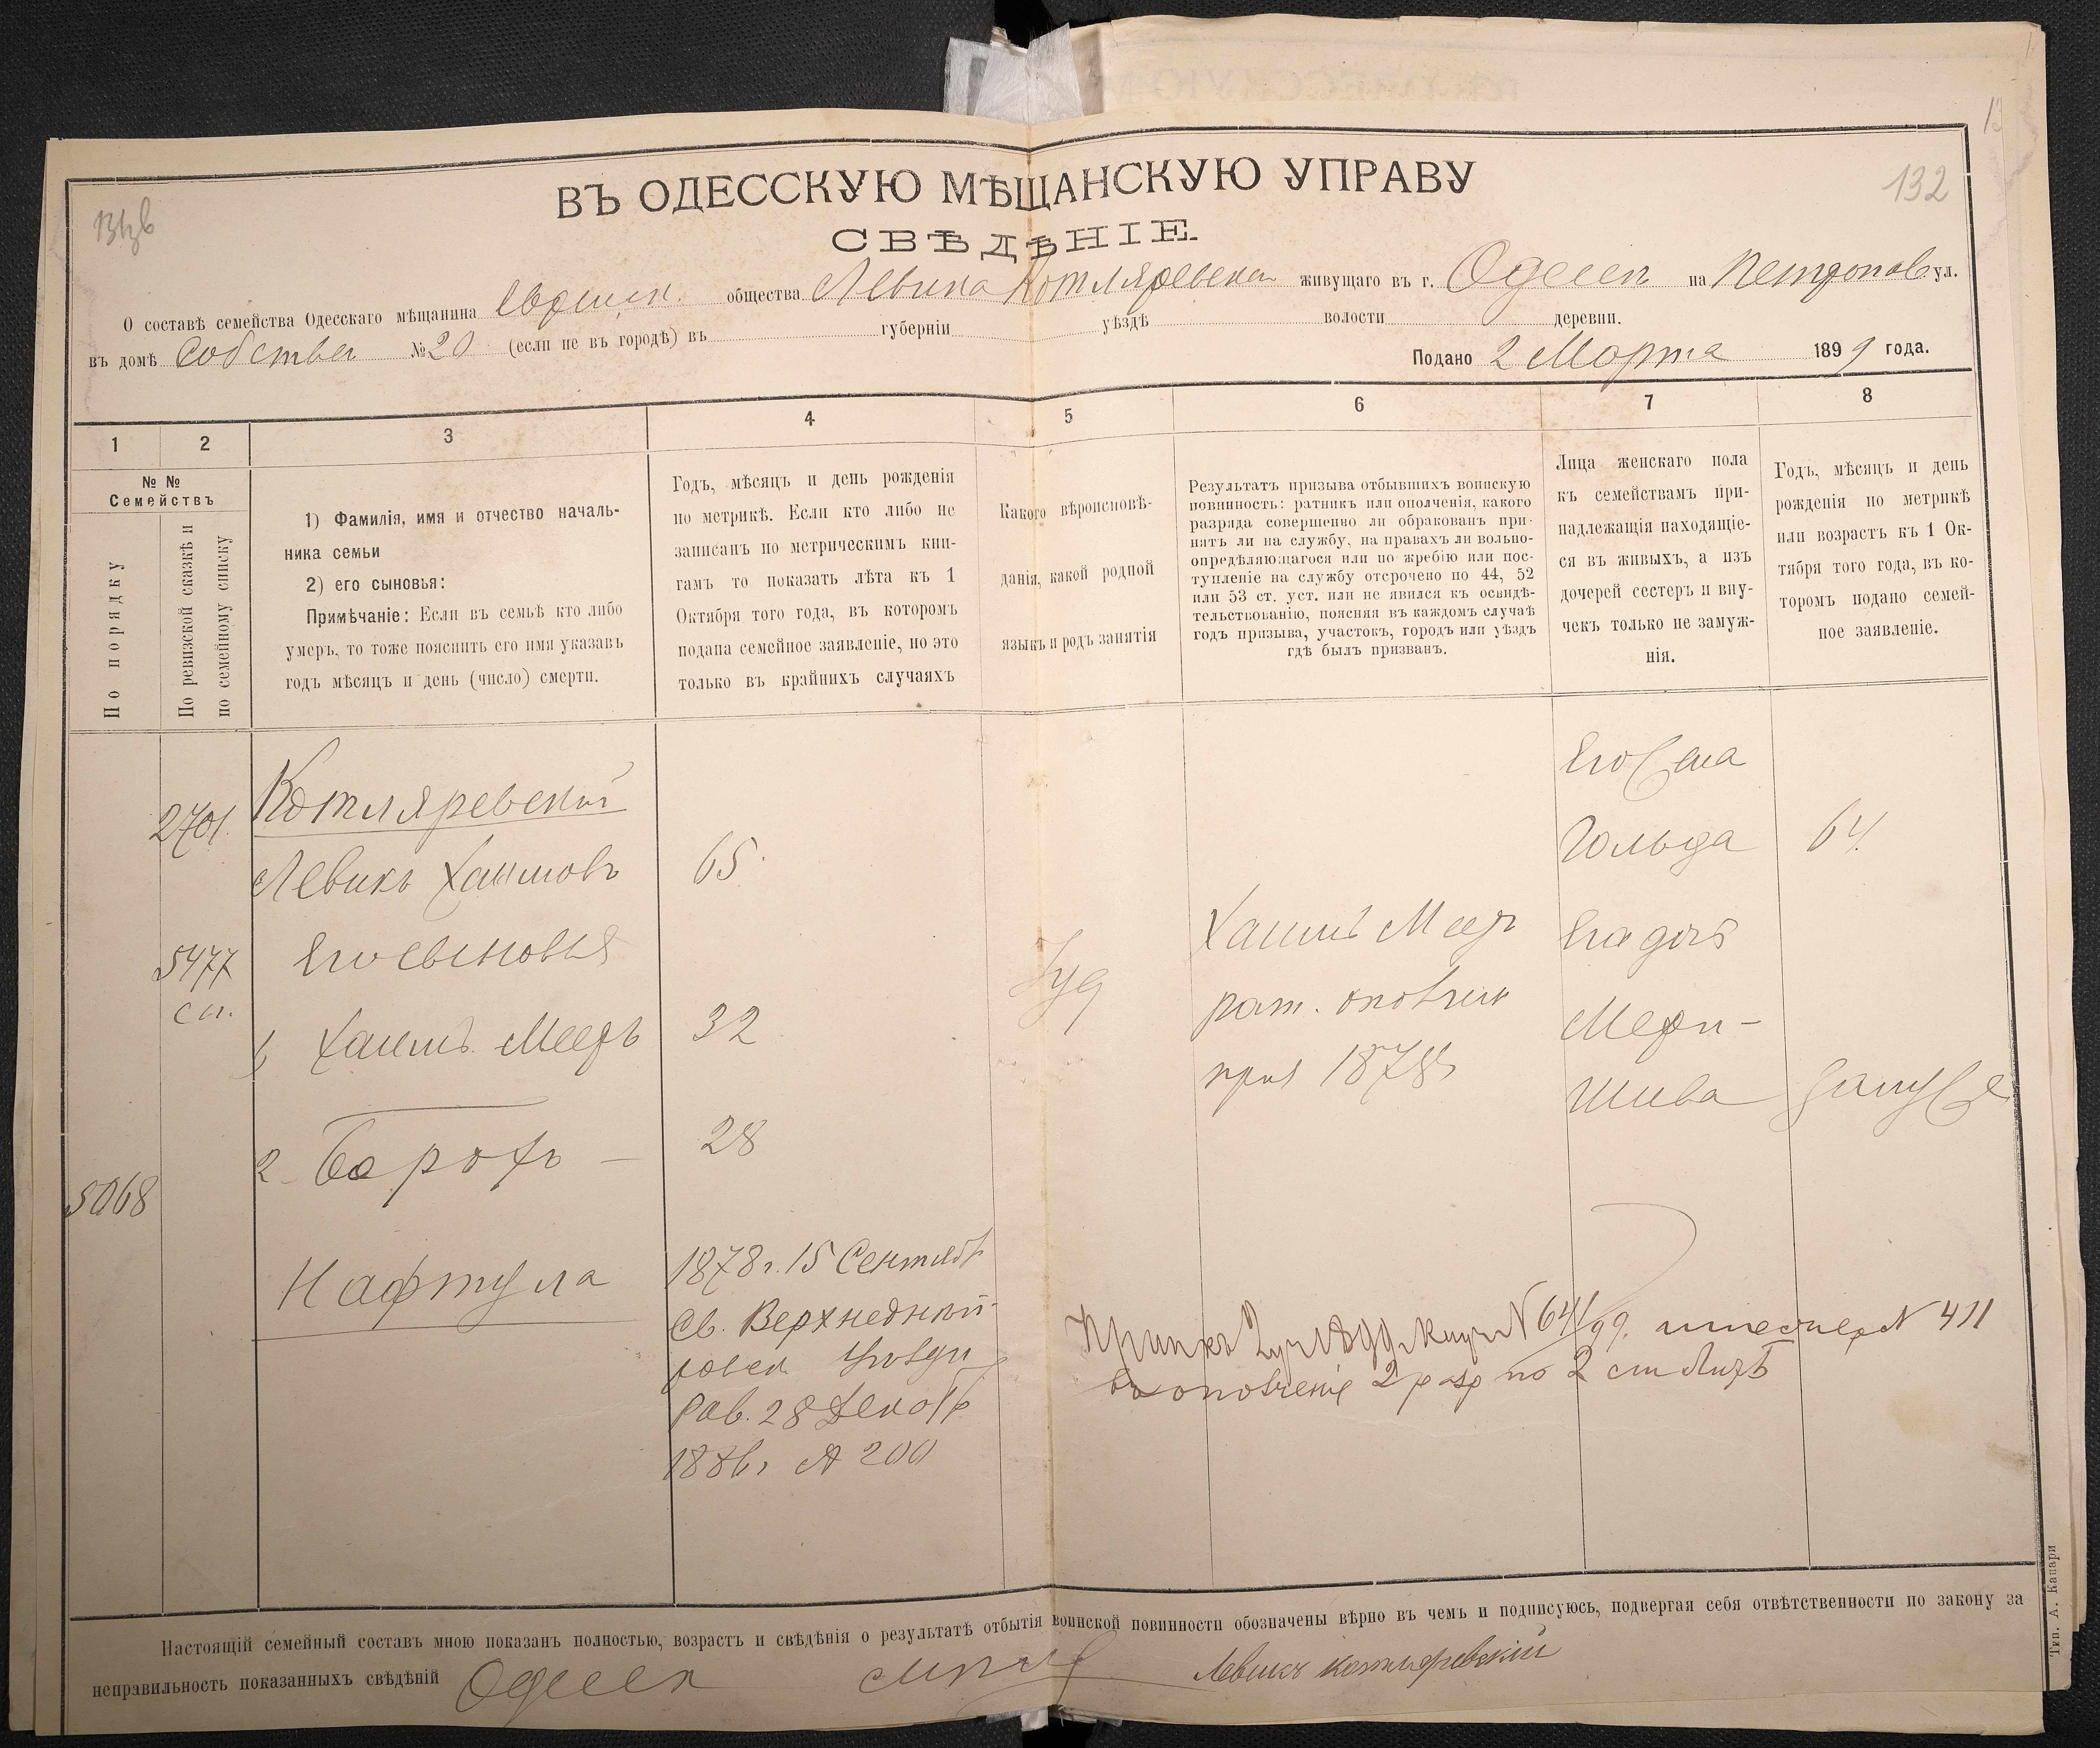 132
ВЪ ОДЕССКУЮ МѢЩАНСКУЮ УПРАВУ
СВѢДѢНІЕ
О составѣ семейства Одесскаго мѣщанина общества Левика Котляревскаго живущаго въ г. Одессѣ на ул.
въ домѣ Собствен №20 (если не въ городѣ) въ губерніи уѣздѣ волости деревни.
Подано 2 Марта 1899 года.
1 2 3 4 5 6 7 8
№ №
Семействъ
По порядку
По ревизской сказкѣ и
по семейному списку
1) Фамилія, имя и отчество началь-
ника семьи
2) его сыновья:
Примѣчаніе: Если въ семьѣ кто либо
умеръ, то тоже пояснить его имя указавъ
годъ мѣсяцъ и день (число) смерти.
Годъ, мѣсяцъ и день рожденія
по метрикѣ. Если кто либо не
записанъ по метрическимъ кни-
гамъ то показать лѣта къ 1
Октября того года, въ которомъ
подана семейное заявленіе, но это
только въ крайнихъ случаяхъ
Какого вѣроисповѣ-
данія, какой родной
языкъ и родъ занятія
Результатъ призыва отбывшихъ воинскую
повинность: ратникъ или ополченія, какого
разряда совершенно ли обракованъ при-
нятъ ли на службу, на правахъ ли вольно-
опредѣляющагося или по жребію или пос-
тупленіе на службу отсрочено по 44, 52
или 53 ст. уст. или не явился къ освидѣ-
тельствованію, поясняя въ каждомъ случаѣ
годъ призыва, участокъ, городъ или уѣздъ
гдѣ былъ призванъ.
Лица женскаго пола
къ семействамъ при-
надлежащія находящіе-
ся въ живыхъ, а изъ
дочерей сестеръ и вну-
чекъ только не замуж-
нія.
Годъ, мѣсяцъ и день
рожденія по метрикѣ
или возрастъ къ 1 Ок-
тября того года, въ ко-
торомъ подано семей-
ное заявленіе.
2701
Котляревскій
Левикъ Хаимовъ 65
Его жена
Гольда 64
5477
сп.
Его сыновья
1, Хаимъ Мееръ 32
Іуд
Хаимъ Мееръ
рат. ополчен
Его дочь
Мери-
Шива
2 Борохъ — 28
5068
Нафтула
1878 г. 15 Сентяб
Св. Верхнеднѣп-
ровск
Рав. 28 Декаб
1886 г № 200
№ 641/99. № 411
въ ополченіе 2 разр по 2
Настоящій семейный составъ мною показанъ полностью, возрастъ и свѣдѣнія о результатѣ отбытія воинской повинности обозначены вѣрно въ чемъ и подписуюсь, подвергая себя отвѣтственности по закону за
неправильность показанныхъ свѣдѣній Одесск Левикъ Котляревскій
Тип. А. Капари